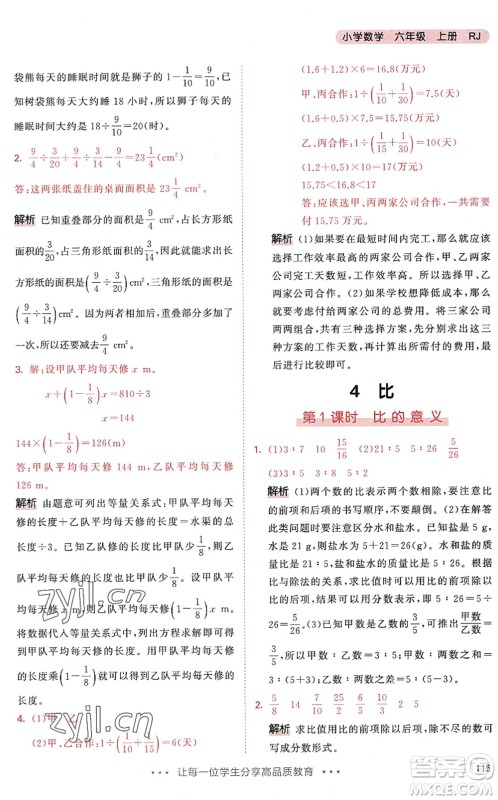 小学数学 六年级 上册 RJ
袋熊每天的睡眠时间就是狮子的(1-1/10)=9/10,已
知树袋熊每天大约睡 18 小时,所以狮子每天的
睡眠时间大约是 18÷9/10=20(时)。
2. 9/4÷3/10+9/4÷3/14-9/4=23 1/4(cm²)
答:这两张纸盖住的桌面面积是 23 1/4 cm²。
解析 已知重叠部分的面积是 9/4,占长方形纸
面积的 3/10,占三角形纸面积的 3/14,则长方形的面
积是(9/4÷3/10),三角形的面积是(9/4÷3/14),盖住的
面积是长方形面积与三角形面积的和再减去一
个重叠部分的面积。
3. 解:设甲队平均每天修 x m。
x+(1-1/8)x=810÷3
x=144
144×(1-1/8)=126(m)
答:甲队平均每天修 144 m,乙队平均每天修
126 m。
解析 由题意可列出等量关系式:甲队平均每天
修的长度+乙队平均每天修的长度=水渠的总
长度÷3。已知乙队平均每天修的长度比甲队少
1/8,把甲队平均每天修的长度看作单位“1”,则乙
队平均每天修的长度是甲队的(1-1/8)。设甲队
平均每天修 x m,则乙队平均每天修(1-1/8)x m,
将数据代入等量关系式,列方程解答即可求出甲
队平均每天修的长度。再用甲队平均每天修的
长度乘(1-1/8)即可求出乙队平均每天修的
长度。
4. (1)甲 乙
(1.6+1.2)×6=16.8(万元)
甲、丙合作:1÷(1/10+1/30)=7.5(天)
(1.6+0.5)×7.5=15.75(万元)
乙、丙合作:1÷(1/15+1/30)=10(天)
(1.2+0.5)×10=17(万元)
15.75<16.8<17
答:应该选择甲、丙两家公司合作,一共需要
付 15.75 万元。
解析 (1)如果在最短时间内完工,那么就应该
选择工作效率最高的两家公司合作,甲、乙两家
公司完工天数短,工作效率高,所以应选择甲、乙
两家公司。(2)如果学校想尽可能降低费用,那么
就要考虑付给两家公司的总费用。将三家公司
两两组合,计算每种方案需要的天数,再进一步
计算所需付费用,并进行对比。
4 比
第1课时 比的意义
1. (1)3∶7 10 15/16 (2)21∶5 5∶26 5/26
(3)5∶2 2∶3
解析 (1)两个数的比表示两个数相除,要注意
比的前项和后项的书写顺序不能颠倒。(2)在解
答此类问题时要注意区分水和盐水。已知盐是 5 g,
水是 21 g,则盐水是 21+5=26(g)。水和盐的
质量比是 21∶5,盐和盐水的质量比是 5∶26。根据
比与除法的关系,求比值时可以用比的前项除以
比的后项,所以盐和盐水的质量比的比值是 5÷
26=5/26。(3)甲数∶乙数=5∶2,则甲数∶甲乙两数
之和=5∶7;乙数∶甲乙两数之差=2∶(5-2)=
2∶3。
2. 5/8 14 7/10 15/8 25 5/8 5/8
解析 求比值用除法,除不尽的或数较大时可以
写成分数形式。
zyjl.cn
zyjl.cn
让每一位学生分享高品质教育
115